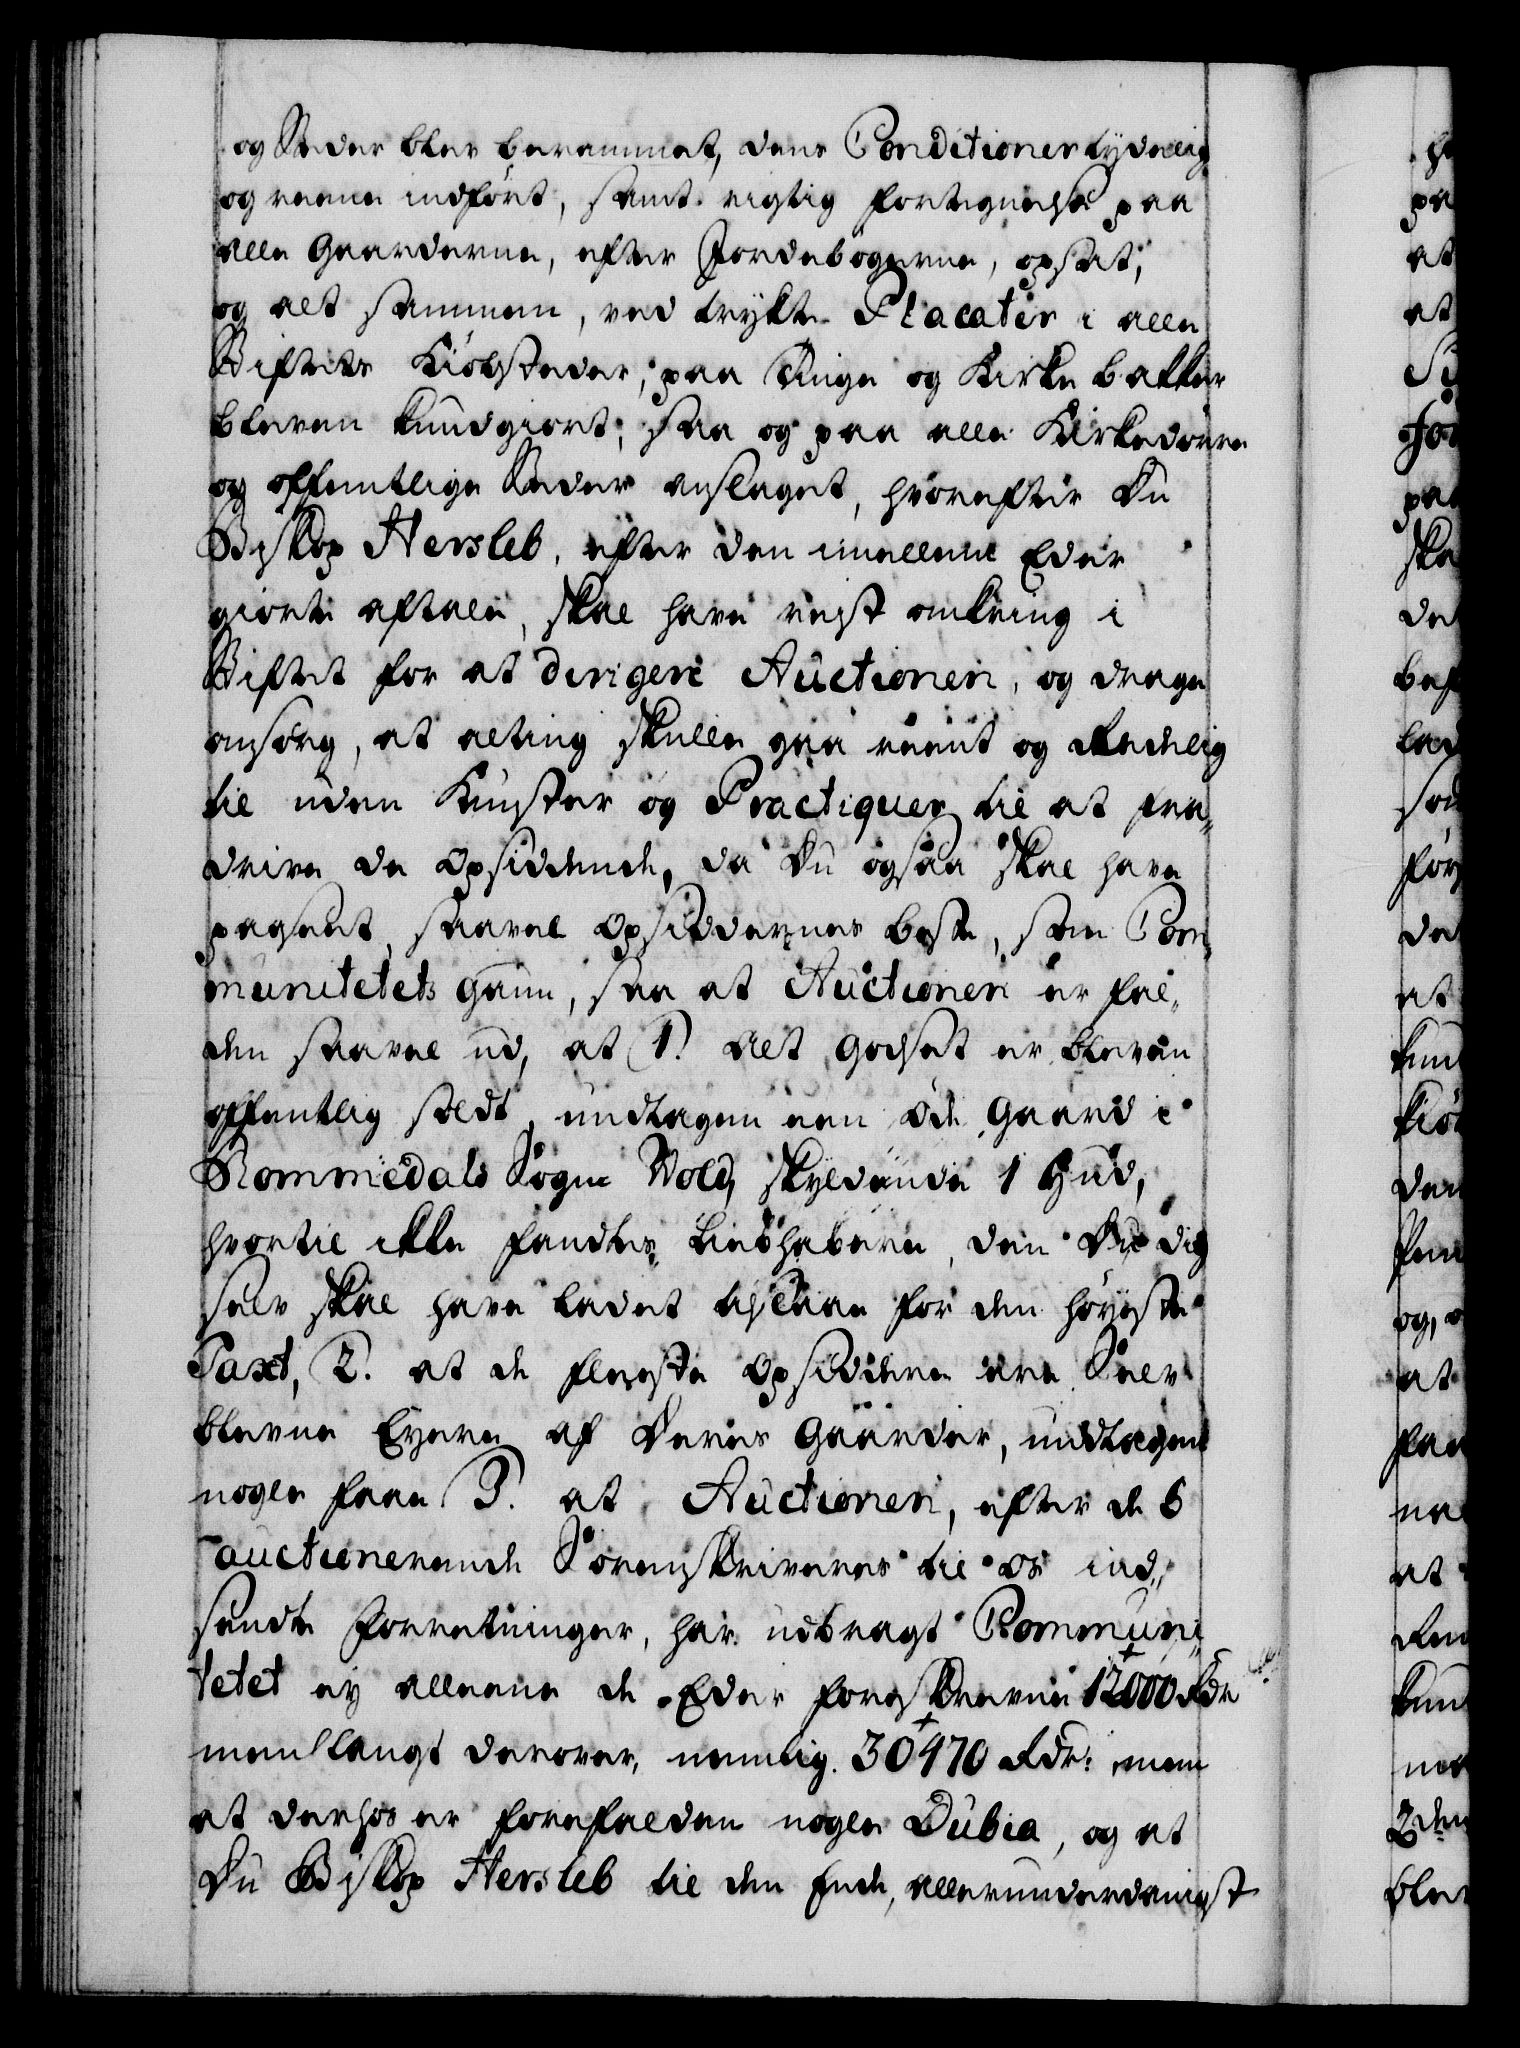 og Steder blev berammet, dens Conditioner tydelig
og reene indført, samt rigtig fortegnelse paa
alle Gaarderne, efter Jordebøgerne, opsat,
og alt sammen, ved trykte Placater i alle
Stiftets Kiøbstæder, paa Tinge og Kirke bakker
bleven kundgiort, saa og paa alle Kirkedørre
og offentlige Steder anslaget, hvorefter Du
Biskop Hersleb, efter den imellem Eder
giorte aftale, skal have reist omkring i
Stiftet for at dirigere Auctionen, og drage
omsorg, at alting skulle gaa reent og Redelig
til uden Kunster og Practiquer til at fra-
drive de Opsiddende, da Du ogsaa skal have
paaseet, saavel Opsiddernes beste, som Com-
munitetets gavn, saa at Auctionen er fal-
den saavel ud, at 1. Alt Godset er bleven
offentlig soldt, undtagen een øde Gaard i
Rommedals Sogn Wold, skyldende 1 Hud,
hvortil ikke fandtes Liebhabere, den Du dig
selv skal have ladet tilslaae for den høyeste
Taxt, 2. at de fleeste Opsiddere ere Selv
blevne Eyere af Deres Gaarder, undtagen
nogle faae 3. at Auctionen, efter de 6
auctionerende Sorenskriveres til os ind-
sendte Forretninger, har udbragt Communi-
tetet ey alleene de Eder foreskrevne 12000 Rdr
men langt derover, nemlig. 30470 Rdr: men
at derhos er forefalden nogle Dubia, og at
Du Biskop Hersleb til den Ende, allerunderdanigst